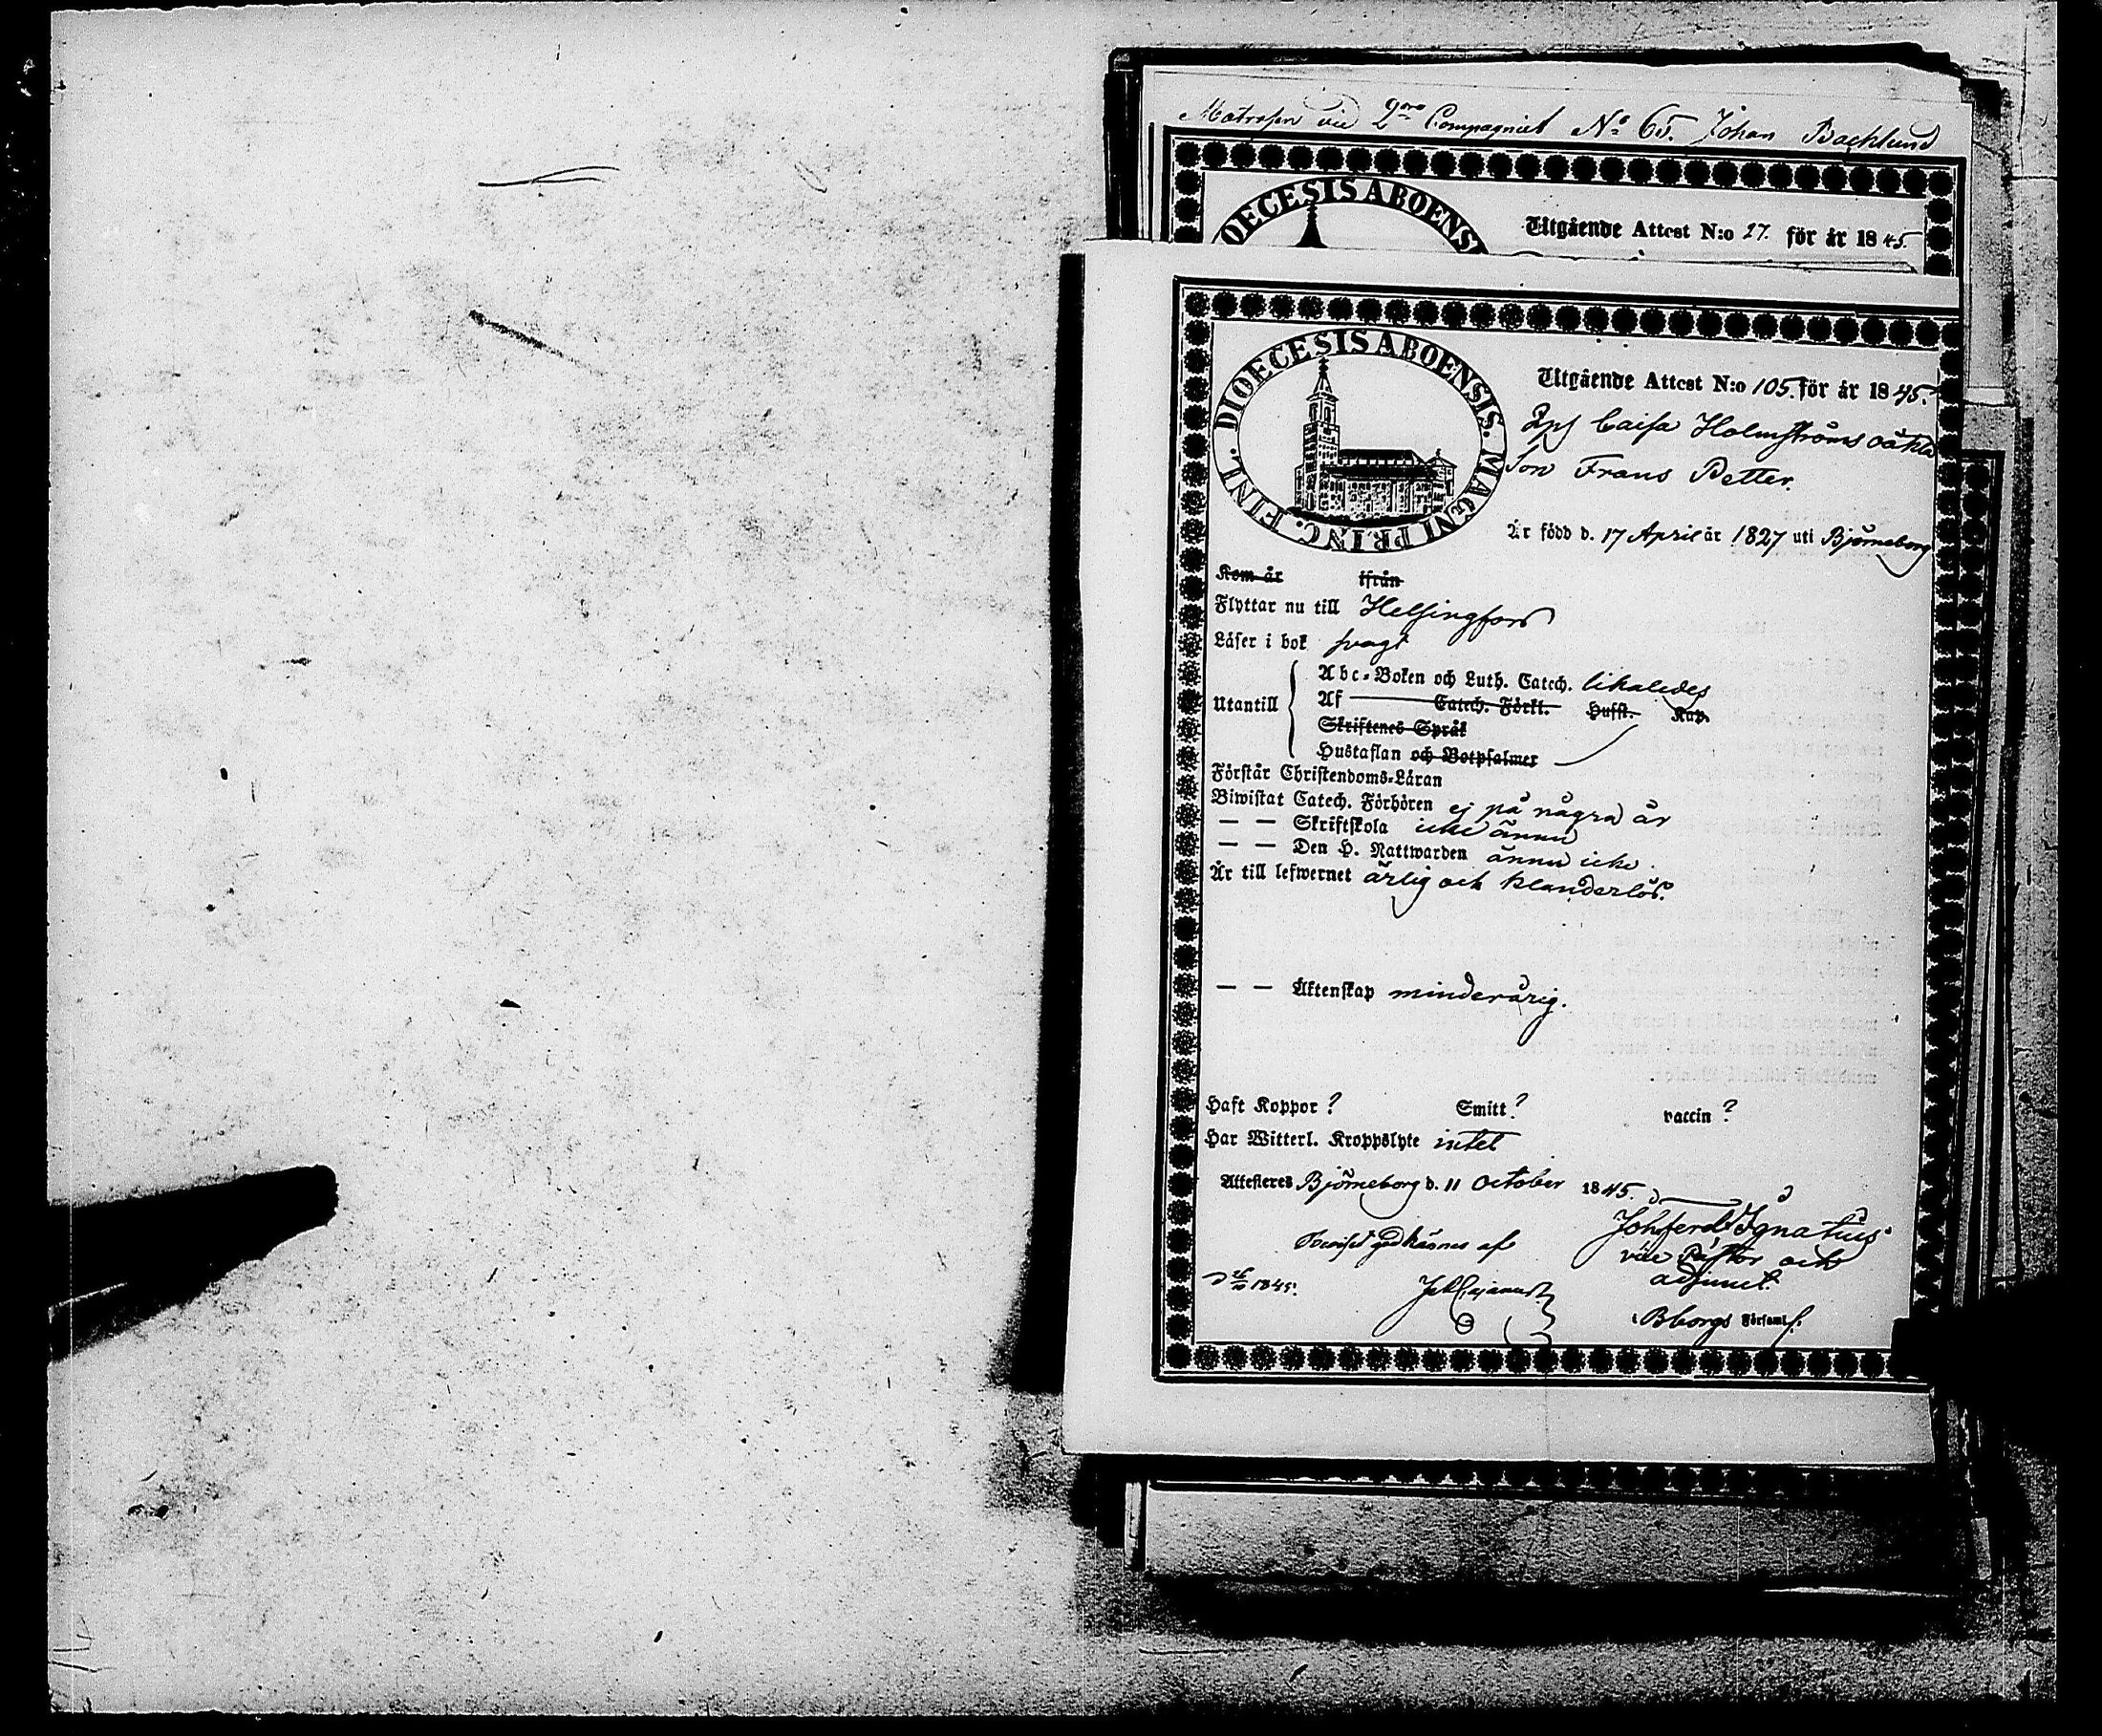 Matrosen vid 2dra Compagniet No 65. Johan Backlund
DIOECESIS ABOENSI
Utgående Attest N:o 27. för år 1845.
DIOECESIS ABOENSIS. MAGNI PRINC. FINL.
Utgående Attest N:o 105. för år 1845.
Caisa Holmströms oäkta
Son Frans Petter.
Är född d. 17 April år 1827 uti Björneborg
Kom år ifrån
Flyttar nu till Helsingfors
Läser i bok svagt
Abc-Boken och Luth. Catech. likaledes
Utantill Af Catech. Förkl. Hufst. Kap.
Skriftenes Språk
Hustaflan och Botpsalmer
Förstår Christendoms-Läran
Biwistat Catech. Förhören ej på några år
— — Skriftskola icke ännu
— — Den H. Nattwarden ännu icke.
Är till lefwernet ärlig och klanderlös.
— — Äktenskap minderårig.
Haft Koppor? Smitt? vaccin?
Har Witterl. Kroppslyte intet
Attesteres Björneborg d. 11 October 1845.
Joh. Ferd. Ignatius
Beviset godkännes af
vice Pastor och
adjunct.
1845.
i Bborgs Församl.